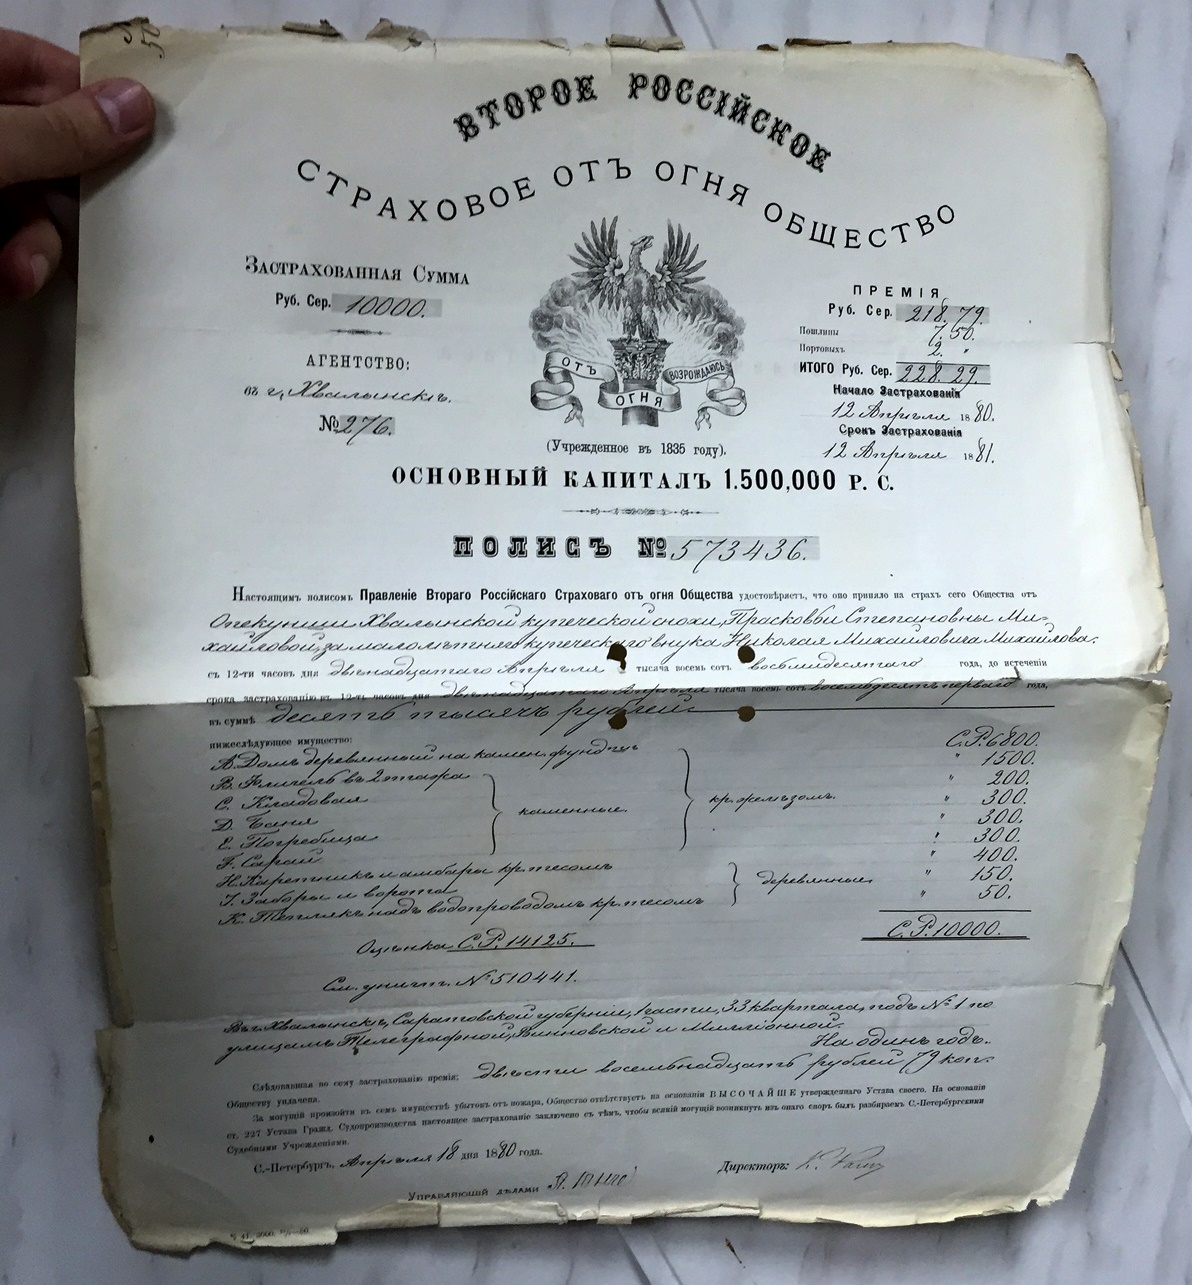 ВТОРОЕ РОССІЙСКОЕ
СТРАХОВОЕ ОТЪ ОГНЯ ОБЩЕСТВО
ЗАСТРАХОВАННАЯ СУММА
Руб. Сер. 10000.
АГЕНТСТВО:
въ г. Хвалынскѣ.
№ 276.
ОТЪ ОГНЯ ВОЗРОЖДАЮСЬ
ПРЕМІЯ
Руб. Сер. 218. 79.
Пошлины 7. 50.
Портовыхъ 2. "
ИТОГО Руб. Сер. 228. 29.
Начало Застрахованія
12 Апрѣля 1880.
Срокъ Застрахованія
12 Апрѣля 1881.
(Учрежденное въ 1835 году).
ОСНОВНЫЙ КАПИТАЛЪ 1.500,000 Р. С.
ПОЛИСЪ № 573436.
Настоящимъ полисомъ Правленіе Втораго Россійскаго Страховаго отъ огня Общества удостовѣряетъ, что оно приняло на страхъ сего Общества отъ
Опекунши Хвалынской купеческой снохи, Прасковьи Степановны Ми-
хайловой, за малолѣтняго купеческаго внука Николая Михайловича Михайлова.
съ 12-ти часовъ дня двѣнадцатаго Апрѣля тысяча восемь сотъ восьмидесятаго года, до истеченія
срока застрахованію въ 12-ти часовъ дня двѣнадцатаго Апрѣля тысяча восемь сотъ восемьдесятъ перваго года,
въ суммѣ десять тысячъ рублей.
нижеслѣдующее имущество:
А. Домъ деревянный на камен. фундтѣ С.Р. 6800.
В. Флигель въ 2 этажа " 1500.
С. Кладовая " 200.
Д. Баня " 300.
Е. Погребица " 300.
F. Сарай " 300.
каменные. кр. желѣзомъ.
Н. Каретникъ и амбары кр. тесомъ " 400.
I. Заборы и ворота " 150.
К. Теплякъ надъ водопроводомъ кр. тесомъ " 50.
деревянные.
С.Р. 10000.
Оцѣнка С.Р. 14125.
См. уничт. № 510441.
Въ г. Хвалынскѣ, Саратовской губерніи, 1 части, 33 квартала, подъ № 1 по
улицамъ Телеграфной, и Милліонной.
На одинъ годъ.
Слѣдовавшая по сему застрахованію премія: двѣсти восемьнадцать рублей 79 коп.
Обществу уплачена.
За могущій произойти въ семъ имуществѣ убытокъ отъ пожара, Общество отвѣтствуетъ на основаніи ВЫСОЧАЙШЕ утвержденнаго Устава своего. На основаніи
ст. 227 Устава Гражд. Судопроизводства настоящее застрахованіе заключено съ тѣмъ, чтобы всякій могущій возникнуть изъ онаго споръ былъ разбираемъ С.-Петербургскими
Судебными Учрежденіями.
С.-Петербургъ, Апрѣля 18 дня 1880 года.
Директоръ:
Управляющій дѣлами